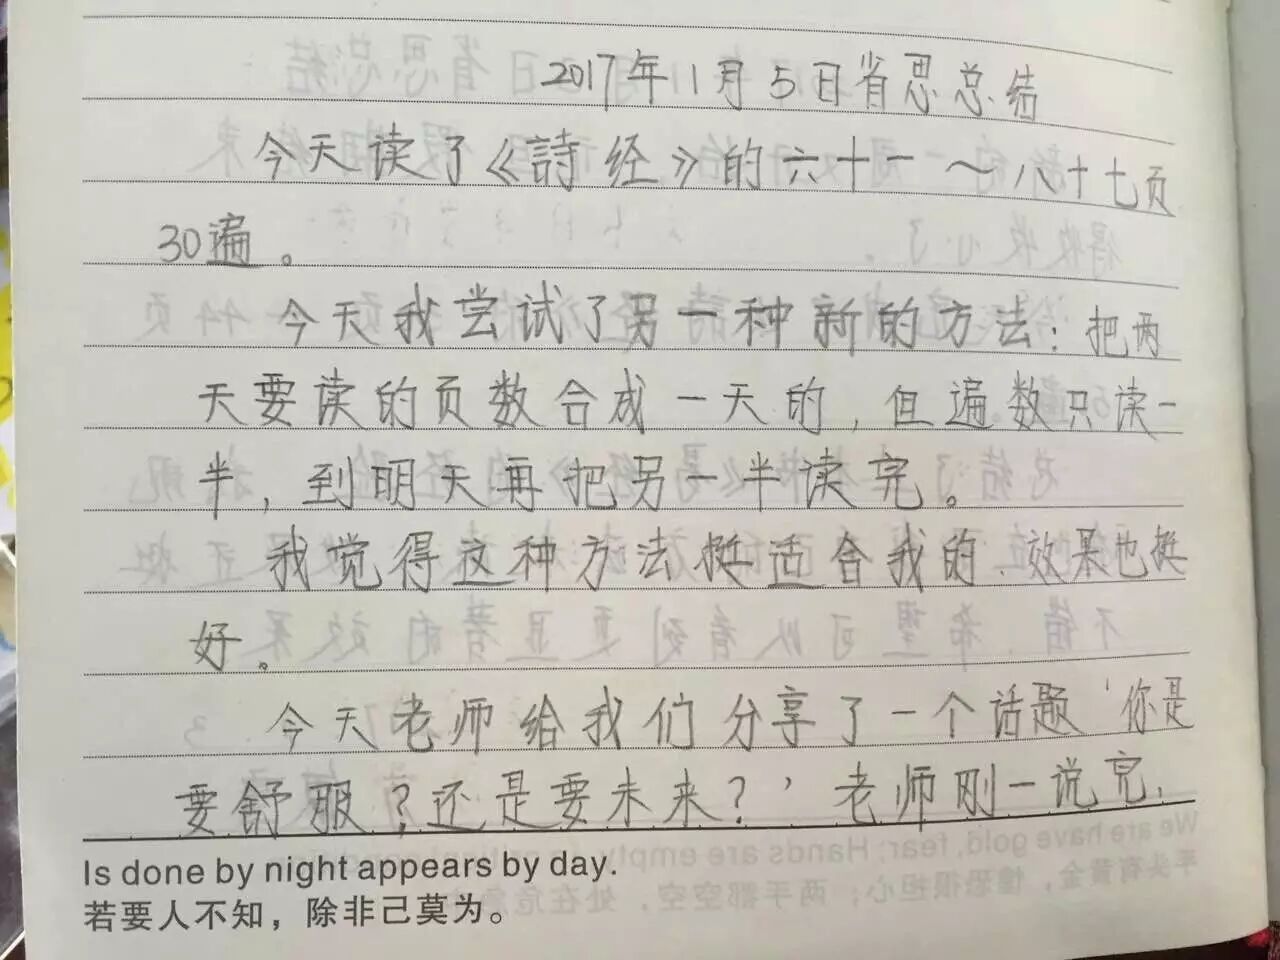 2017年11月5日省思总结
今天读了《詩经》的六十一～八十七页
30遍。
今天我尝试了另一种新的方法：把两
天要读的页数合成一天的，但遍数只读一
半，到明天再把另一半读完。
我觉得这种方法挺适合我的．效果也挺
好。
今天老师给我们分享了一个话题‘你是
要舒服？还是要未来？’老师刚一说完，
Is done by night appears by day.
若要人不知，除非己莫为。